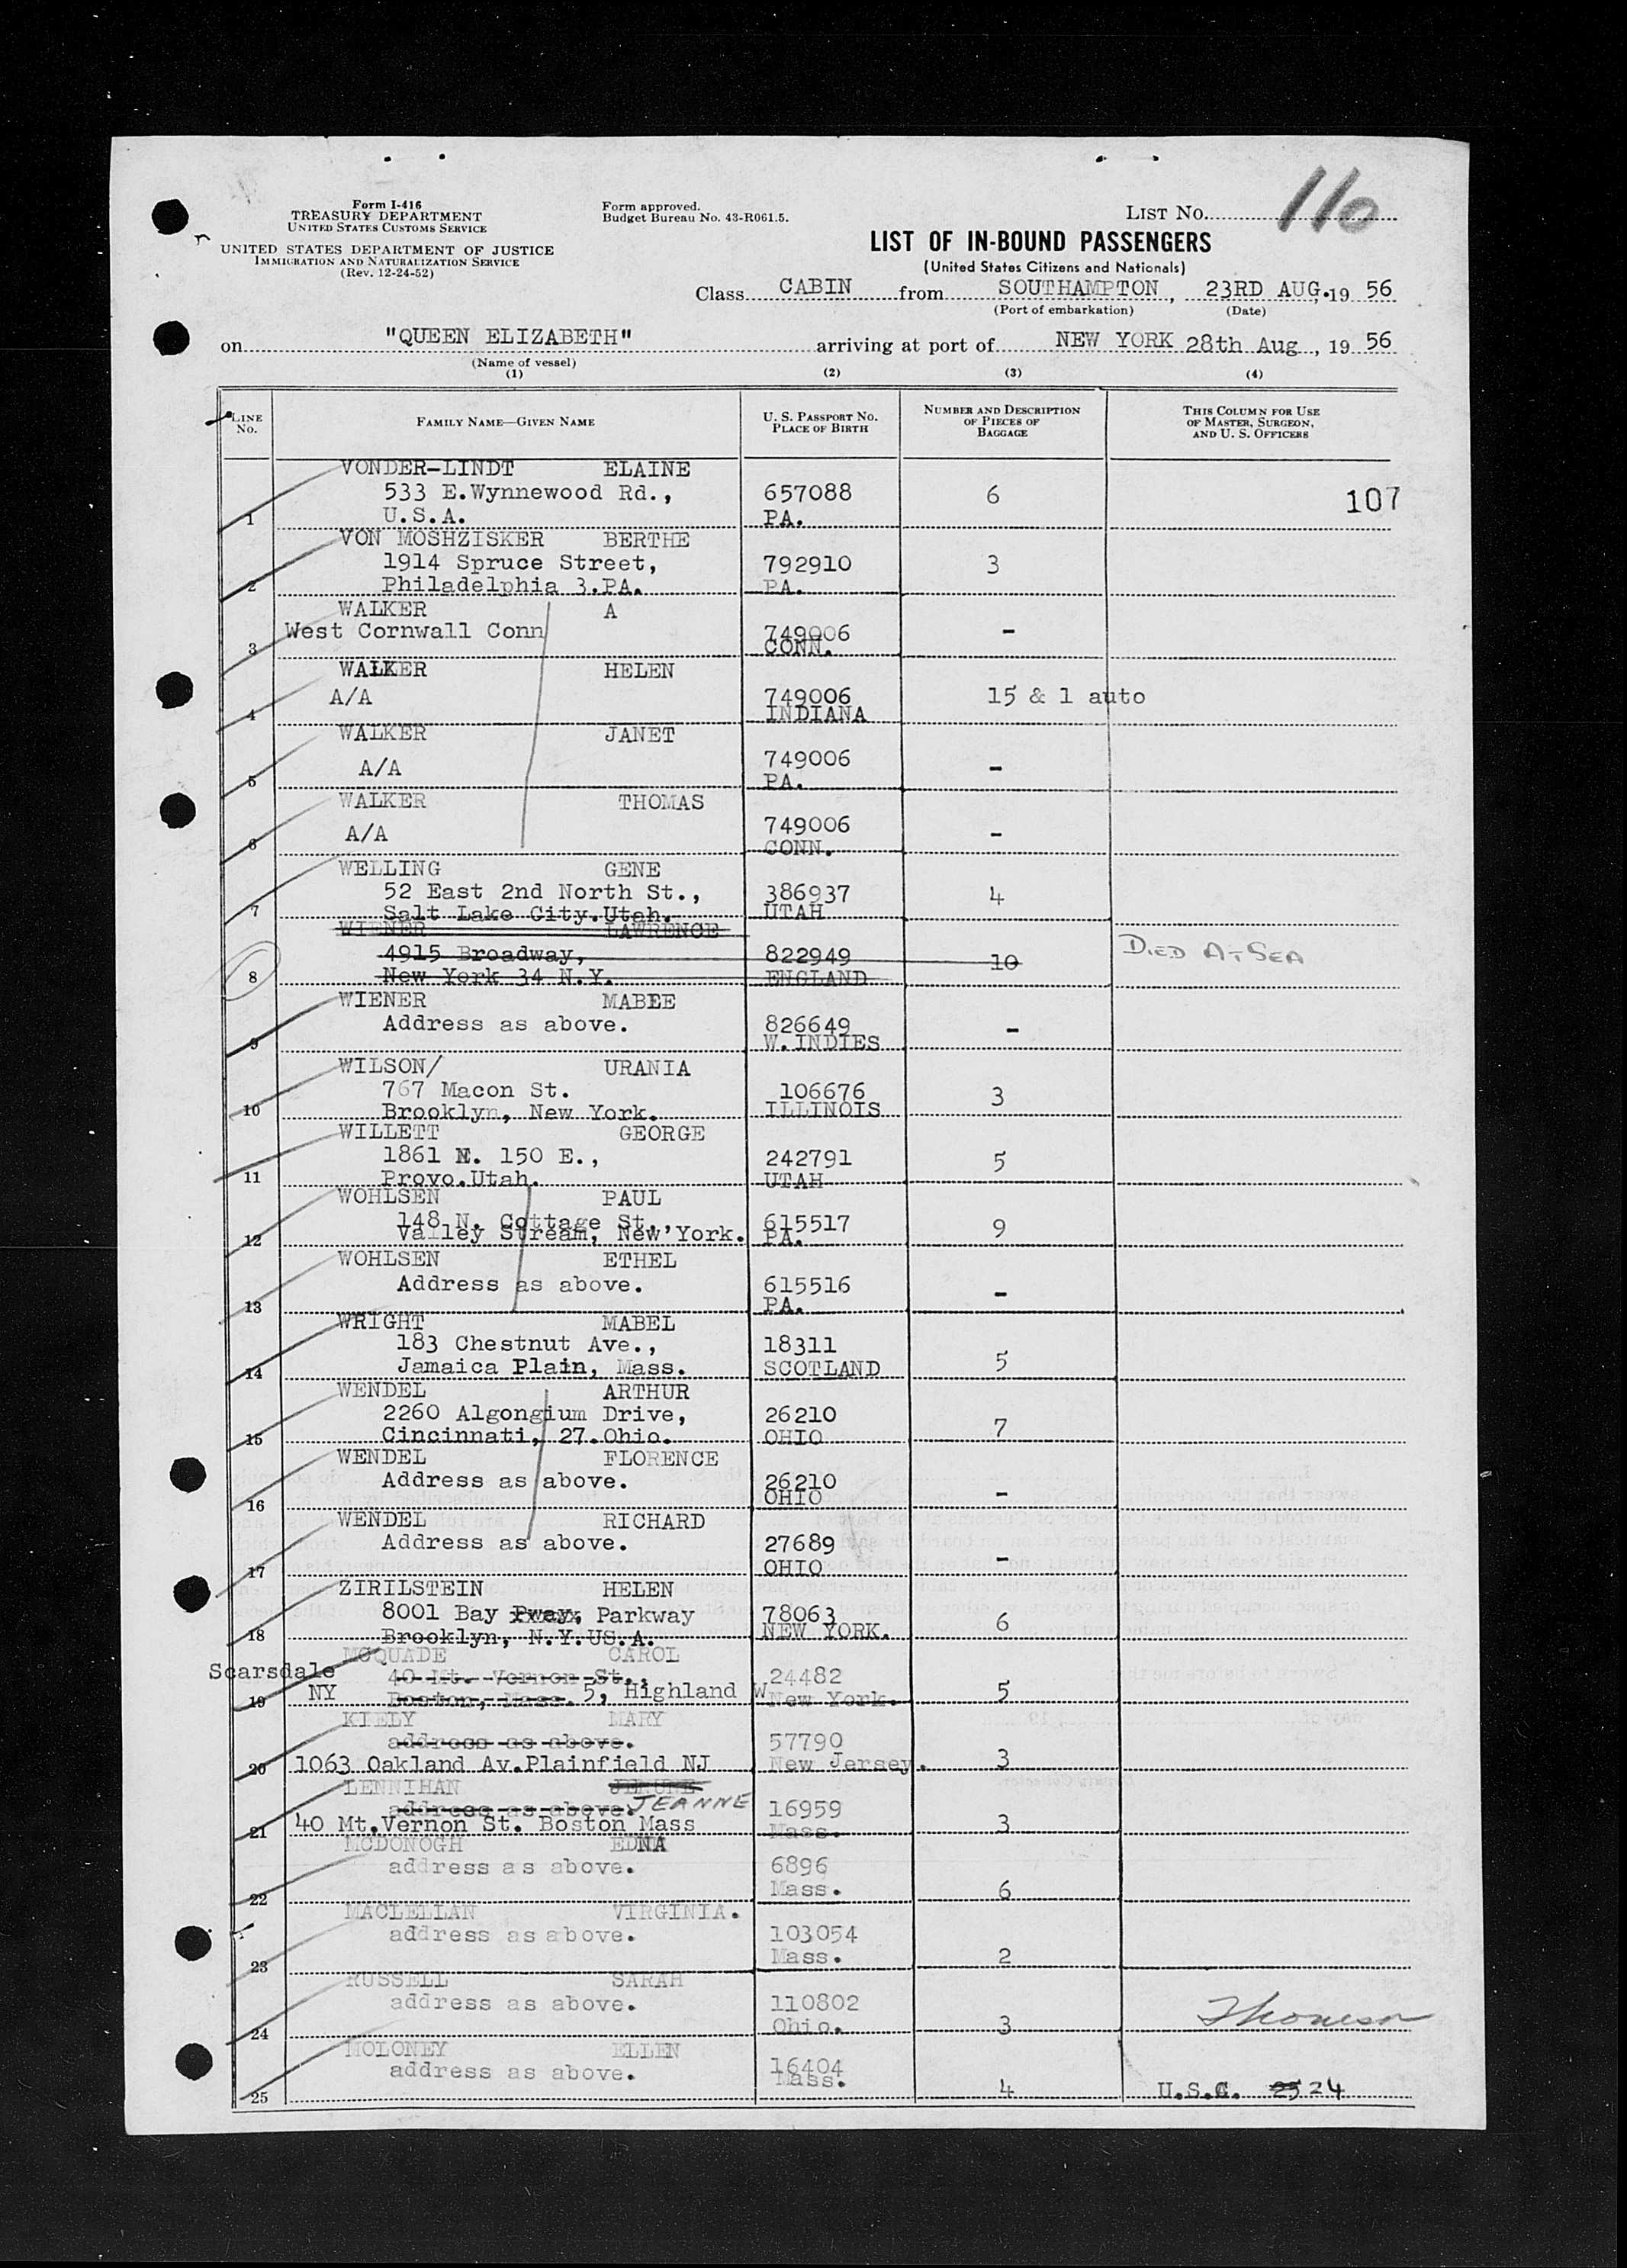 Form I-416
TREASURY DEPARTMENT
UNITED STATES CUSTOMS SERVICE
UNITED STATES DEPARTMENT OF JUSTICE
IMMIGRATION AND NATURALIZATION SERVICE
(Rev. 12-24-52)
Form approved.
Budget Bureau No. 43-R061.5.
LIST NO. 110
LIST OF IN-BOUND PASSENGERS
(United States Citizens and Nationals)
Class CABIN from SOUTHAMPTON, 23RD AUG. 19 56
(Port of embarkation) (Date)
on "QUEEN ELIZABETH" arriving at port of NEW YORK 28th Aug , 19 56
(Name of vessel)
(1) (2) (3) (4)
LINE NO. FAMILY NAME—GIVEN NAME U. S. PASSPORT NO. PLACE OF BIRTH NUMBER AND DESCRIPTION OF PIECES OF BAGGAGE THIS COLUMN FOR USE OF MASTER, SURGEON, AND U. S. OFFICERS
VONDER-LINDT ELAINE
533 E.Wynnewood Rd., 657088 6 107
1 U.S.A. PA.
VON MOSHZISKER BERTHE
1914 Spruce Street, 792910 3
2 Philadelphia 3.PA. PA.
WALKER A
West Cornwall Conn 749006 -
3 CONN.
WALKER HELEN
A/A 749006 15 & 1 auto
4 INDIANA
WALKER JANET
A/A 749006 -
5 PA.
WALKER THOMAS
A/A 749006 -
6 CONN.
WELLING GENE
52 East 2nd North St., 386937 4
7 Salt Lake City.Utah. UTAH
WIENER LAWRENCE
4915 Broadway, 822949 10 DIED AT SEA
8 New York 34 N.Y. ENGLAND
WIENER MABEE
Address as above. 826649 -
9 W.INDIES
WILSON/ URANIA
767 Macon St. 106676 3
10 Brooklyn, New York. ILLINOIS
WILLETT GEORGE
1861 N. 150 E., 242791 5
11 Provo.Utah. UTAH
WOHLSEN PAUL
148 N. Cottage St., 615517 9
12 Valley Stream, New York. PA.
WOHLSEN ETHEL
Address as above. 615516 -
13 PA.
WRIGHT MABEL
183 Chestnut Ave., 18311 5
14 Jamaica Plain, Mass. SCOTLAND
WENDEL ARTHUR
2260 Algongium Drive, 26210 7
15 Cincinnati, 27.Ohio. OHIO
WENDEL FLORENCE
Address as above. 26210 -
16 OHIO
WENDEL RICHARD
Address as above. 27689 -
17 OHIO
ZIRILSTEIN HELEN
8001 Bay Pway, Parkway 78063 6
18 Brooklyn, N.Y.US.A. NEW YORK.
MCQUADE CAROL
Scarsdale 40 Mt. Vernon St., 24482
19 NY Boston, Mass. 5, Highland W New York. 5
KIELY MARY
address as above. 57790
20 1063 Oakland Av.Plainfield NJ New Jersey. 3
LENNIHAN
address as above. JEANNE 16959
21 40 Mt.Vernon St. Boston Mass Mass. 3
MCDONOGH EDNA
address as above. 6896
22 Mass. 6
MACLELLAN VIRGINIA.
address as above. 103054
23 Mass. 2
RUSSELL SARAH
address as above. 110802
24 Ohio. 3
MOLONEY ELLEN
address as above. 16404
25 Mass. 4 U.S.C. 25 24